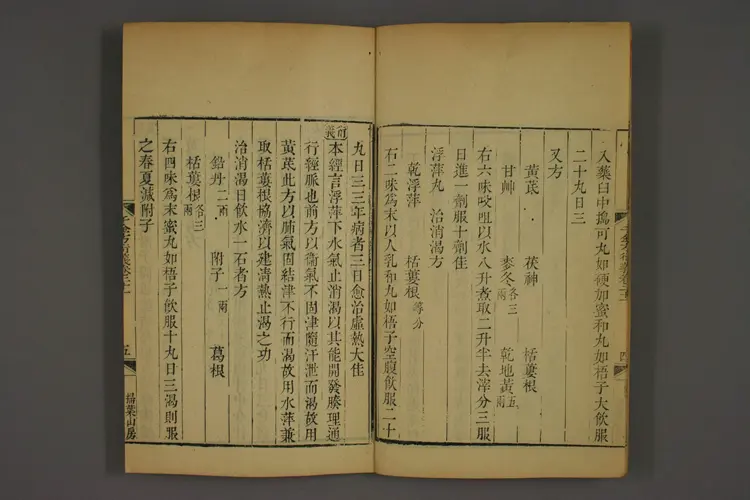 入藥臼中擣可丸如硬加蜜和丸如梧子大飲服
二十九日三
又方
黃芪 茯神 栝蔞根
甘艸 麥冬各三兩 乾地黃五兩
右六味㕮咀以水八升煮取二升半去滓分三服
日進一劑服十劑佳
浮萍丸 治消渴方
乾浮萍 栝蔞根等分
右二味爲末以人乳和丸如梧子空腹飲服二十
四
九日三三年病者三日愈治虛熱大佳
衍義本經言浮萍下水氣止消渴以其能開發腠理通
行經脈也前方以衞氣不固津隨汗泄而渴故用
黃芪此方以肺氣固結津不行而渴故用水萍兼
取栝蔞根協濟以建淸熱止渴之功
治消渴日飲水一石者方
鉛丹二兩 附子一兩 葛根
栝蔞根各三兩
右四味爲末蜜丸如梧子飲服十九日三渴則服
之春夏減附子
千金方衍義卷二十一
五
掃葉山房